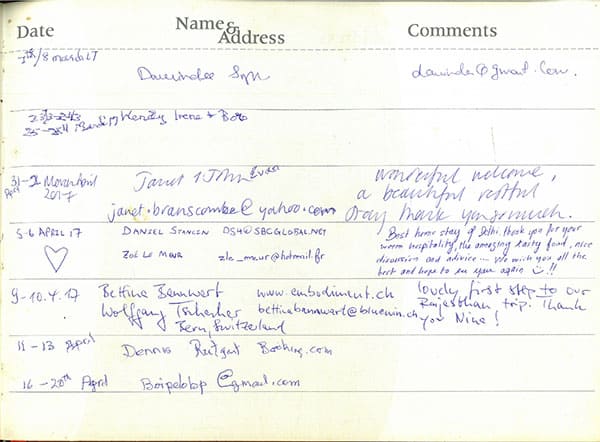 Date Name & Address Comments
/8 March 17 Davinder davinder@gmail.com.
Wendy Irene + Bob
31-2 March/April 2017 Janet & John Evan wonderful welcome,
a beautiful restful
janet.branscombe@yahoo.com stay thank you so much.
5-6 APRIL 17 DANIEL STANCIN DS4@SBCGLOBAL.NET Best home stay of Delhi. thank you for your
warm hospitality, the amazing tasty food, nice
ZOÉ LE MEUR zle_meur@hotmail.fr discussion and advice... We wish you all the
best and hope to see you again !!
9-10.4.17 Bettina Bannwart www.embodiment.ch lovely first step to our
Wolfgang bettinabannwart@bluewin.ch Rajasthan trip. Thank
Bern, Switzerland you Nina!
11-13 April Dennis Booking.com
16-20th April @gmail.com